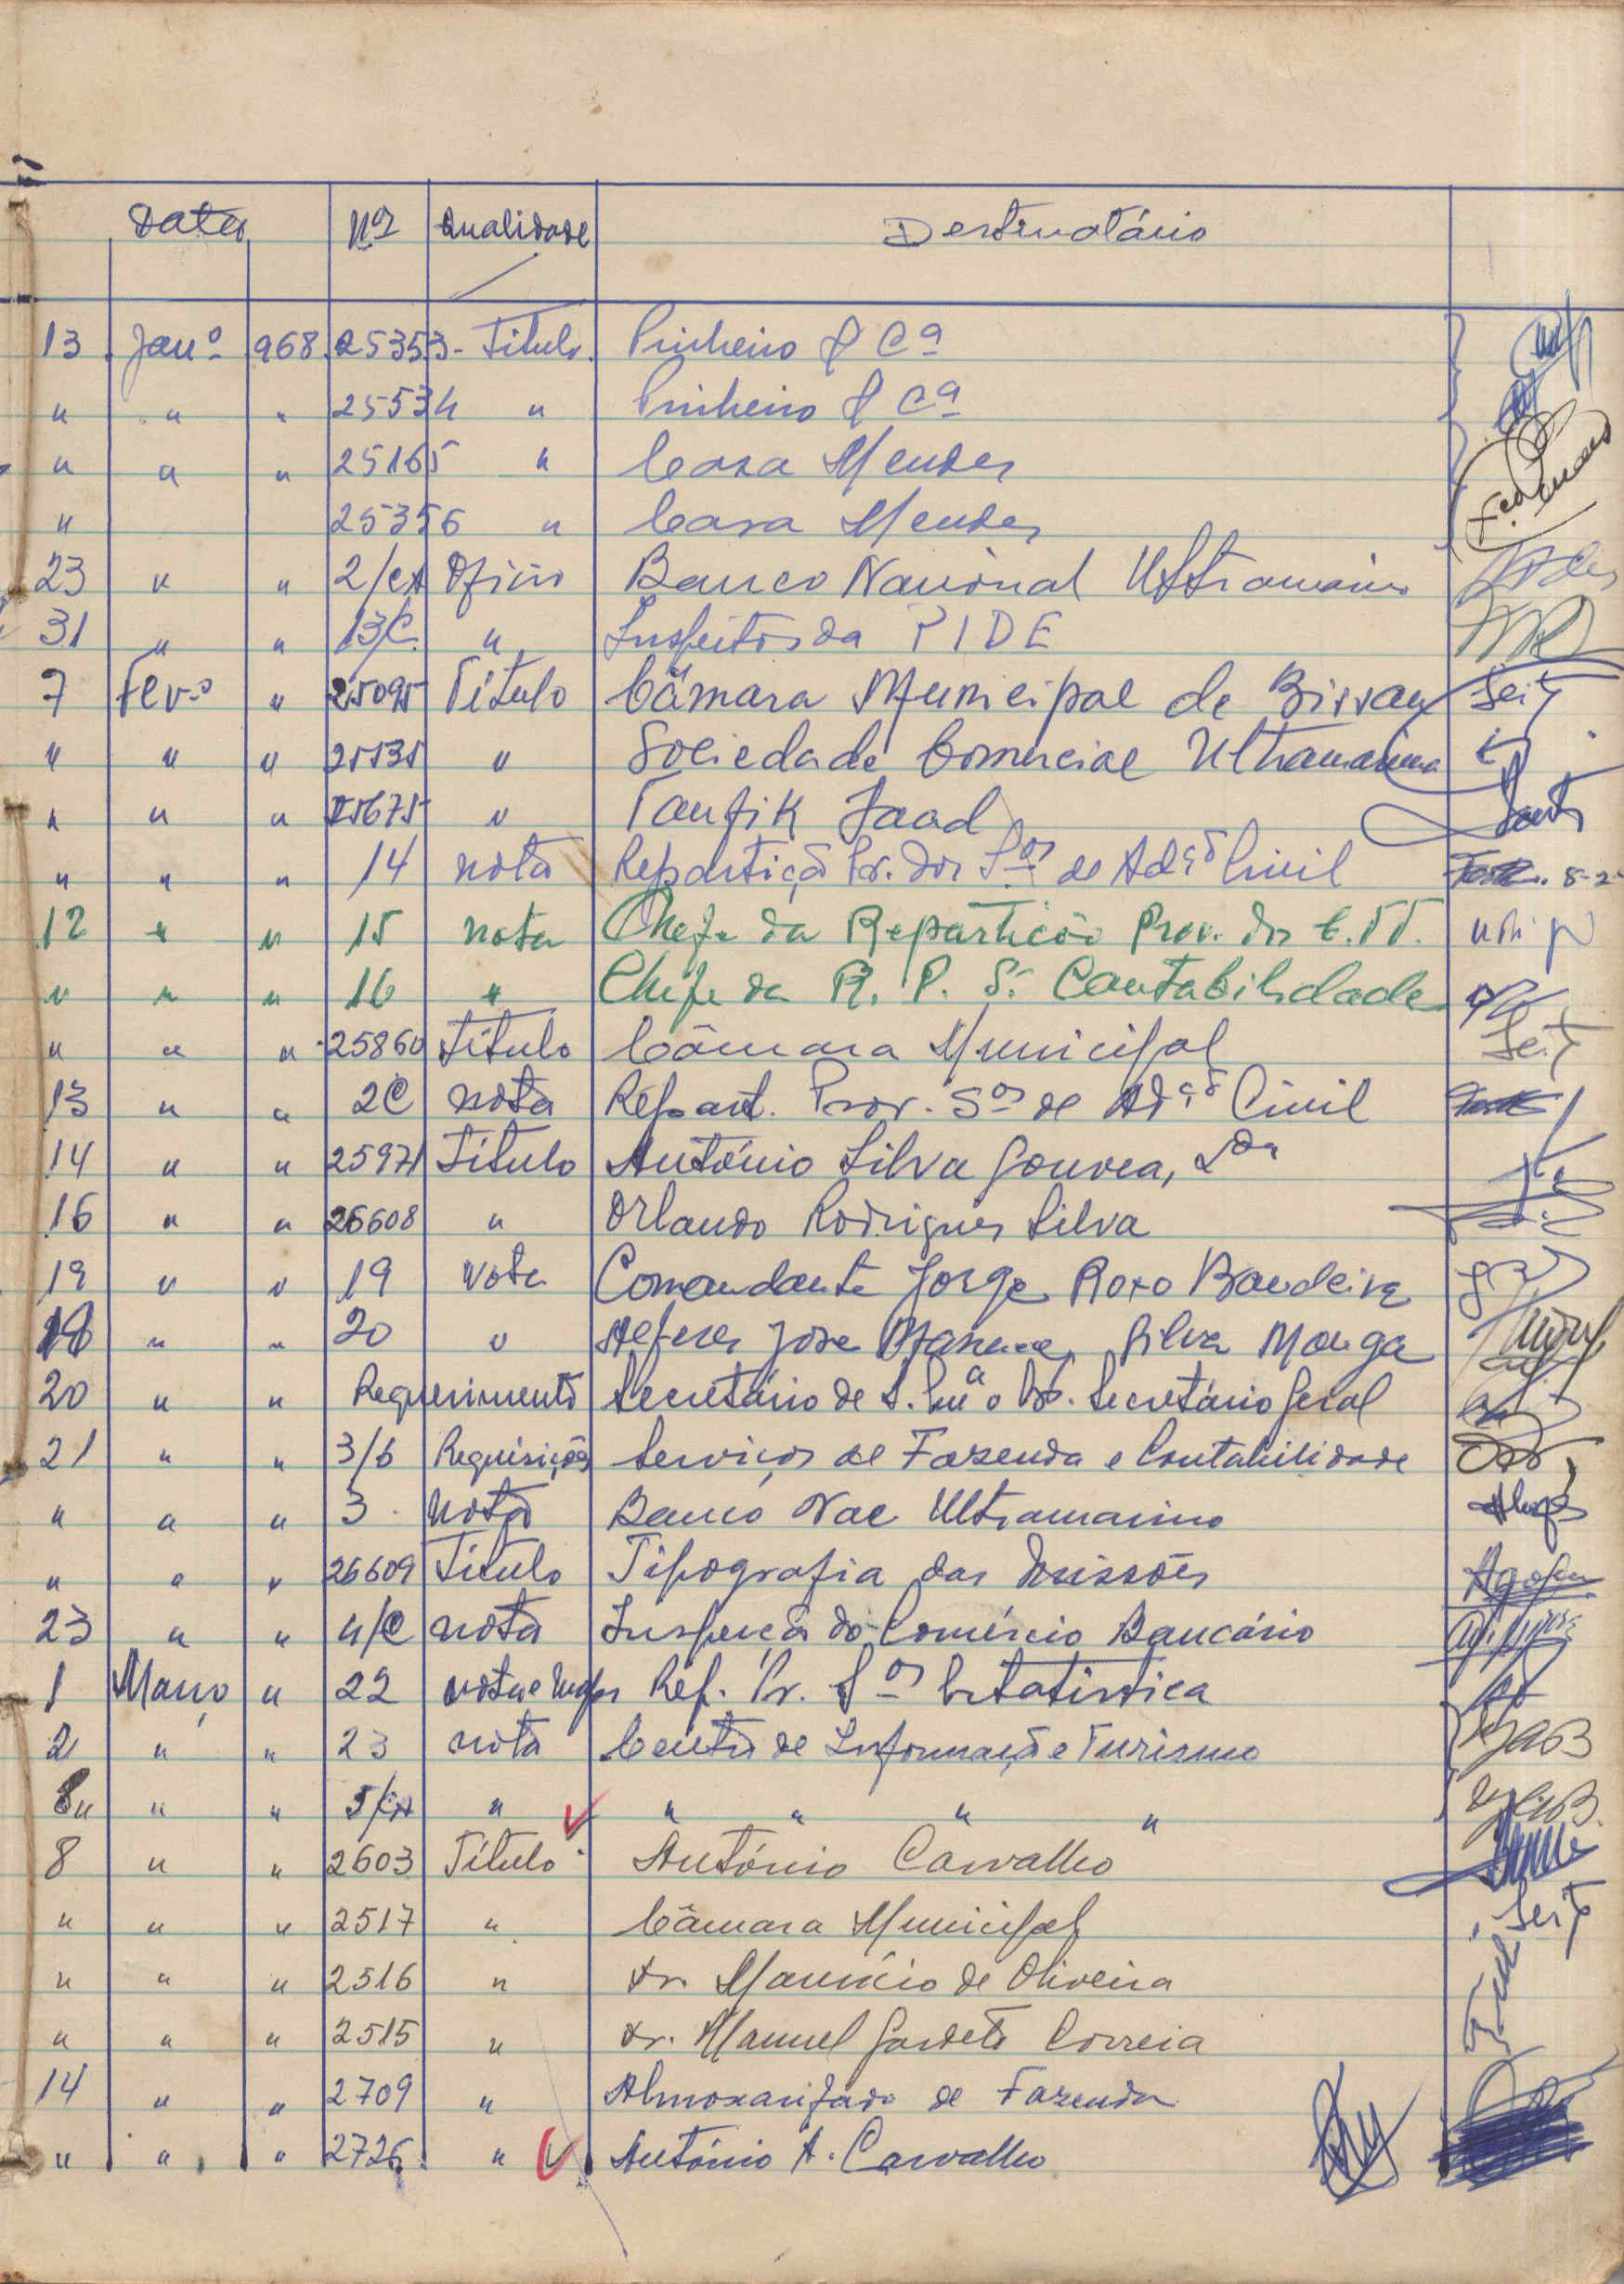 Datas Nos Qualidade Destinatário
13 Janº 968 25353 - Título Pinheiro & Cª
" " " 25534 " Pinheiro & Cª
" " " 25165 " Casa Mendes
" 25356 " Casa Mendes
23 " " 2/CA Ofício Banco Nacional Ultramarino
31 " " 13/C. " Inspector da PIDE
7 Fevº " 25095 Título Câmara Municipal de Bissau
" " " 25135 " Sociedade Comercial Ultramarina
" " " 25675 " Taufik Saad
" " " 14 nota Repartição Pr. dos Sos de Adçõ Civil 8-2
12 " " 15 nota Chefe da Repartição Prov. dos C.T.T.
" " " 16 " Chefe da R. P. S. Contabilidade
" " " 25860 Título Câmara Municipal Seity
13 " " 2C nota Repart. Prov. Sos de Adçõ Civil
14 " " 25971 Título António Silva Gouvea, Lda
16 " " 26608 " Orlando Rodrigues Silva
19 " " 19 Nota Comandante Jorge Roxo Bandeira
" " 20 " Alferes Jose Silva Monga
20 " " Requerimento Secretário de S. Exª o Secretário Geral
21 " " 3/6 Requisição Serviços de Fazenda e Contabilidade
" " " 3 nota Banco Nac Ultramarino
" " " 26609 Título Tipografia das Missões
23 " " 4/C nota Inspecção do Comércio Bancário
1 Março " 22 nota e Rep. Pr. Sos Estatistica
2 " " 23 nota Centro de Informação e Turismo
8 " " " 5/CA " " " " "
8 " " 2603 Título António Carvalho
" " " 2517 " Câmara Municipal
" " " 2516 " Dr. Maurício de Oliveira
" " " 2515 " Dr. Manuel Gardete Correia
14 " " 2709 " Almoxarifado de Fazenda
" " " 2726 " António A. Carvalho